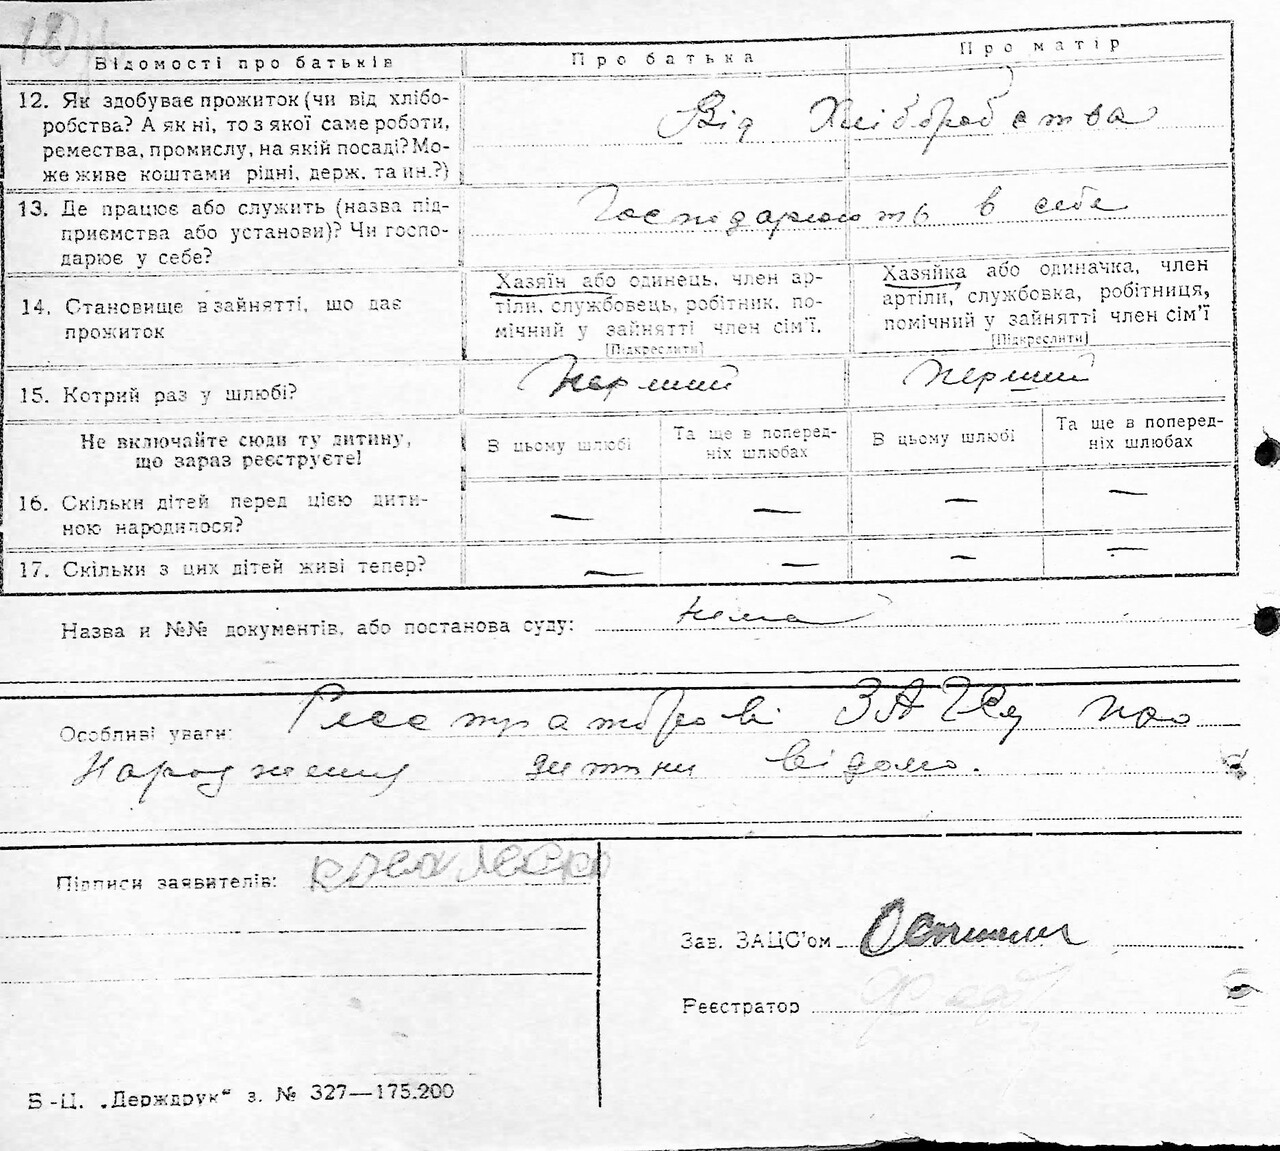 Відомості про батьків
Про батька
Про матір
12. Як здобуває прожиток (чи від хлібо-
робства? А як ні, то з якої саме роботи,
ремества, промислу, на якій посаді? Мо-
же живе коштами рідні, держ. та ин.?)
Від Хліборобства
13. Де працює або служить (назва під-
приємства або установи)? Чи госпо-
дарює у себе?
Господарюють в себе
14. Становище в зайнятті, що дає
прожиток
Хазяїн або одинець, член ар-
тіли, службовець, робітник, по-
мічний у зайнятті член сім'ї.
[Підкреслити]
Хазяйка або одиначка, член
артіли, службовка, робітниця,
помічний у зайнятті член сім'ї
[Підкреслити]
15. Котрий раз у шлюбі?
Перший
Перший
Не включайте сюди ту дитину,
що зараз реєструєте!
В цьому шлюбі
Та ще в поперед-
ніх шлюбах
В цьому шлюбі
Та ще в поперед-
ніх шлюбах
16. Скільки дітей перед цією дити-
ною народилося?
— — — —
17. Скільки з цих дітей живі тепер?
— — — —
Назва и №№ документів, або постанова суду: нема
Особливі уваги: Реєстраторові ЗАГСу про
Народження дитини відомо.
Підписи заявителів:
Зав. ЗАЦС'ом
Реєстратор
Б-Ц. „Держдрук" з. № 327—175.200